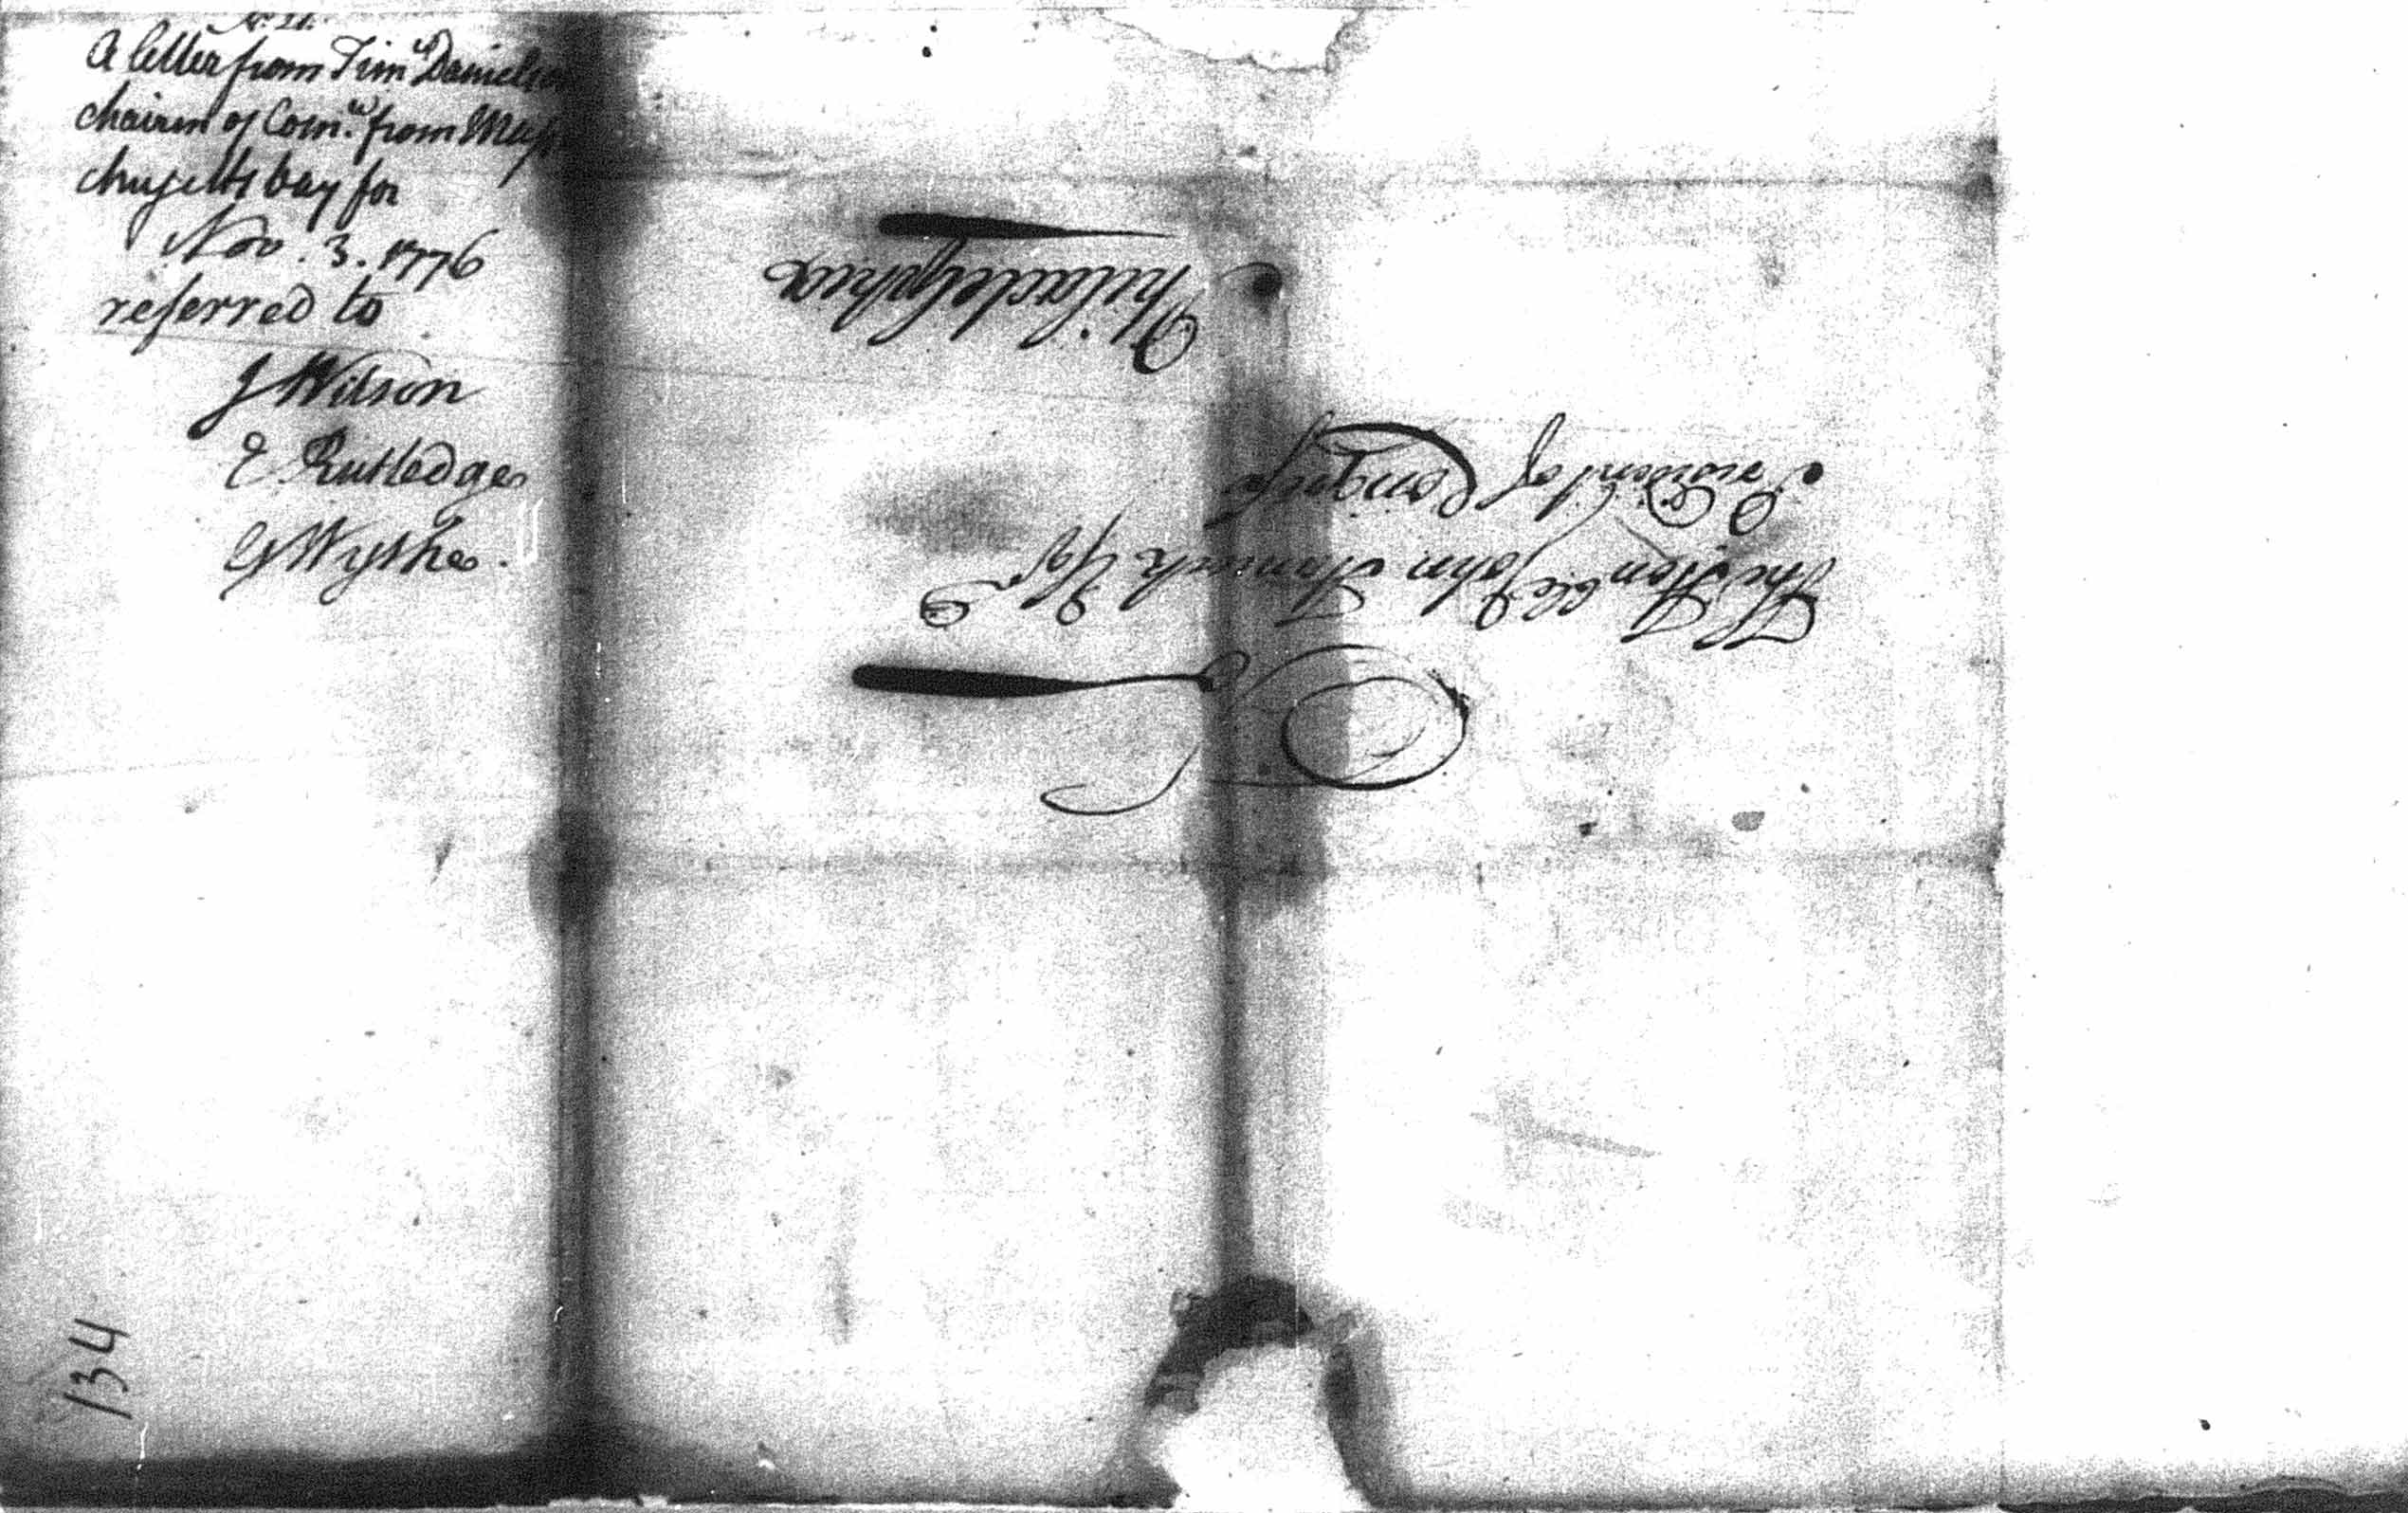 No. 21.
A letter from Timy Danielson
chairm of Comee from Massa
chusetts bay for
Nov. 3. 1776
referred to
J Wilson
E Rutledge
G Wythe.
The Honble John Hancock Esqr
President of Congress
Philadelphia
134